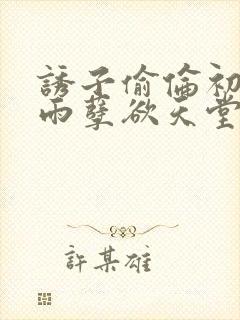 誘子偷倫初
雨孽欲天堂
許某雄